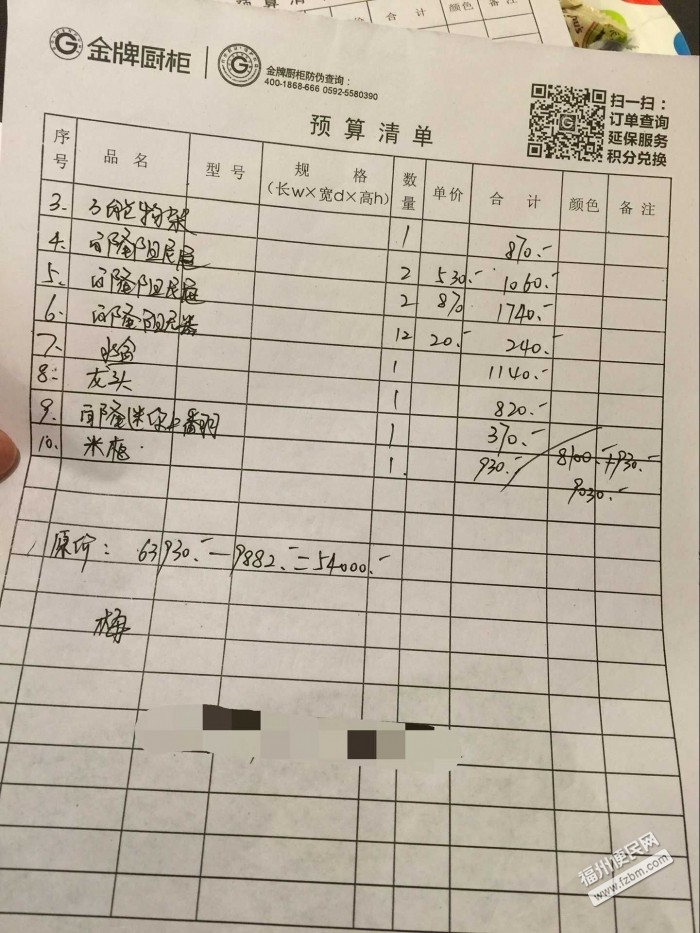 预 合 计 颜色 备注
金牌厨柜
金牌厨柜防伪查询：
400-1868-666 0592-5580390
扫一扫：
订单查询
延保服务
积分兑换
预算清单
序号 品名 型号 规格（长w×宽d×高h） 数量 单价 合计 颜色 备注
3. 物架 1 870.-
4. 百隆阻尼 2 530.- 1060.-
5. 百隆阻尼 2 870 1740.-
6. 百隆阻尼器 12 20.- 240.-
7. 水 1 1140.-
8. 龙头 1 820.-
9. 百隆 1 370.-
10. 米 1. 930.- 8100.-+930.-
9030.-
原价： 63930.- － 9882.- = 54000.-
梅
福州便民网
www.fzbm.com